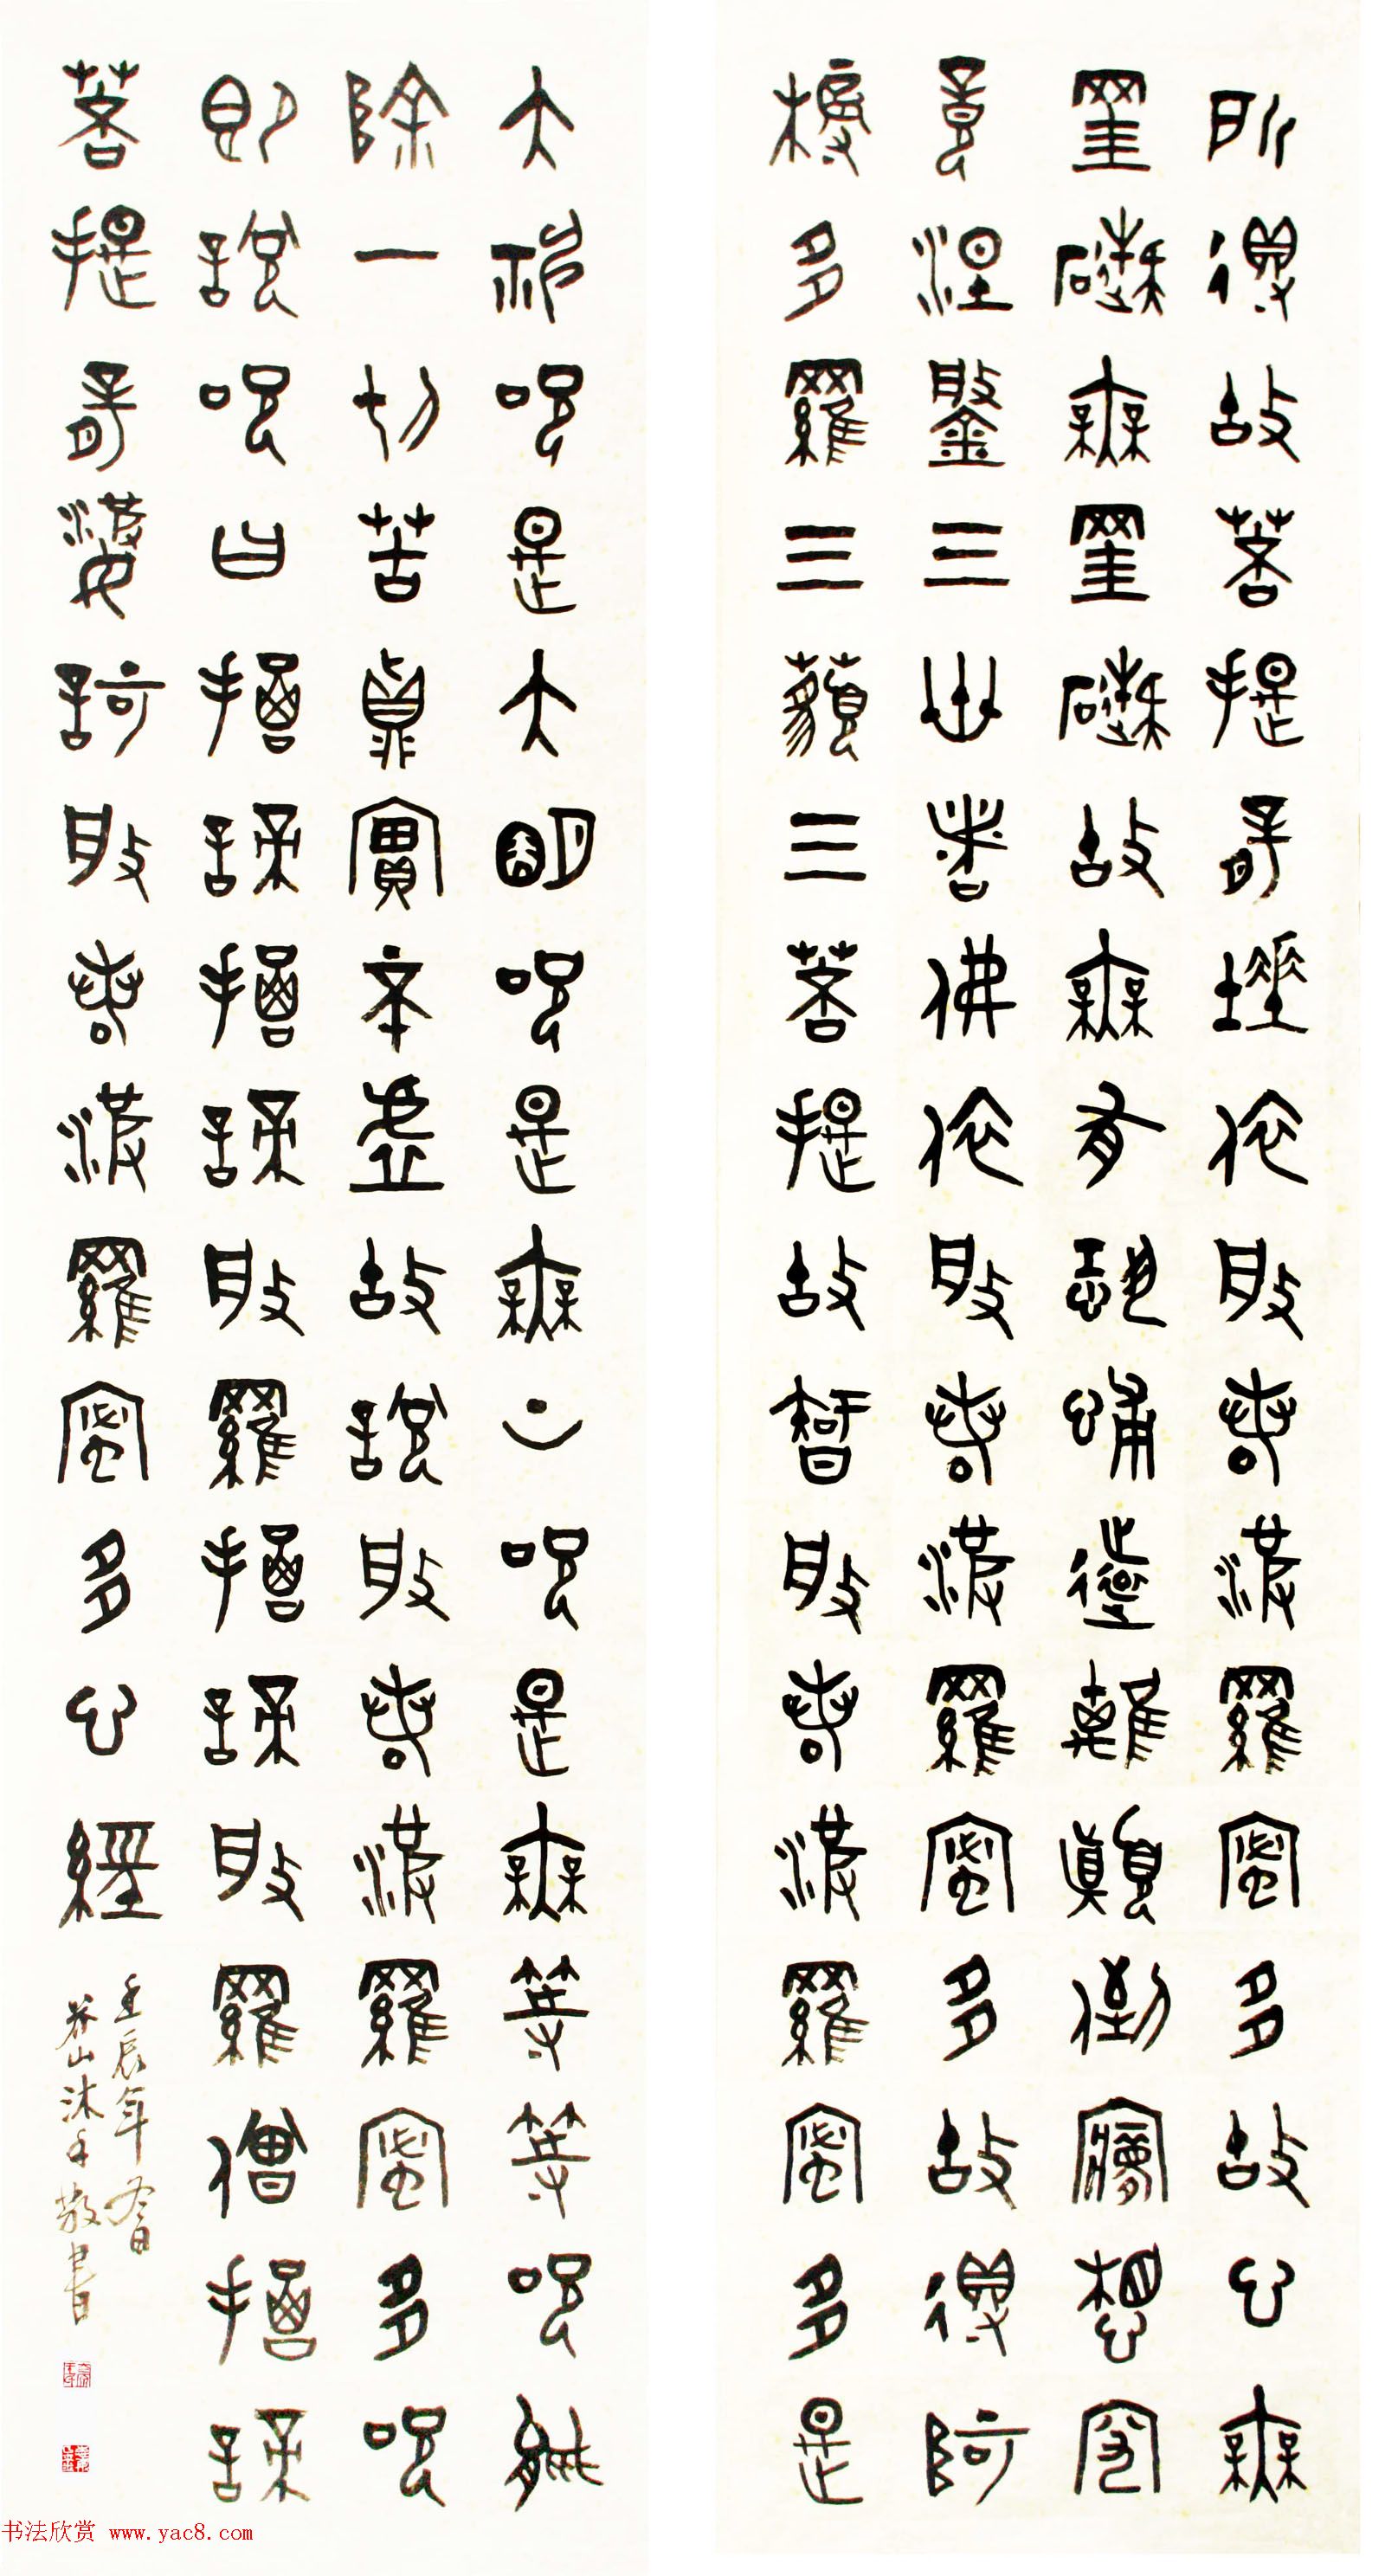 所得故菩提薩埵依般若波羅蜜多故心無
罣礙無罣礙故無有恐怖遠離顛倒夢想究
竟涅槃三世諸佛依般若波羅蜜多故得阿
耨多羅三藐三菩提故知般若波羅蜜多是
大神咒是大明咒是無上咒是無等等咒能
除一切苦真實不虛故說般若波羅蜜多咒
即說咒曰揭諦揭諦般羅揭諦般羅僧揭諦
菩提薩婆訶般若波羅蜜多心經
壬辰年
山沐手敬書
书法欣赏 www.yac8.com